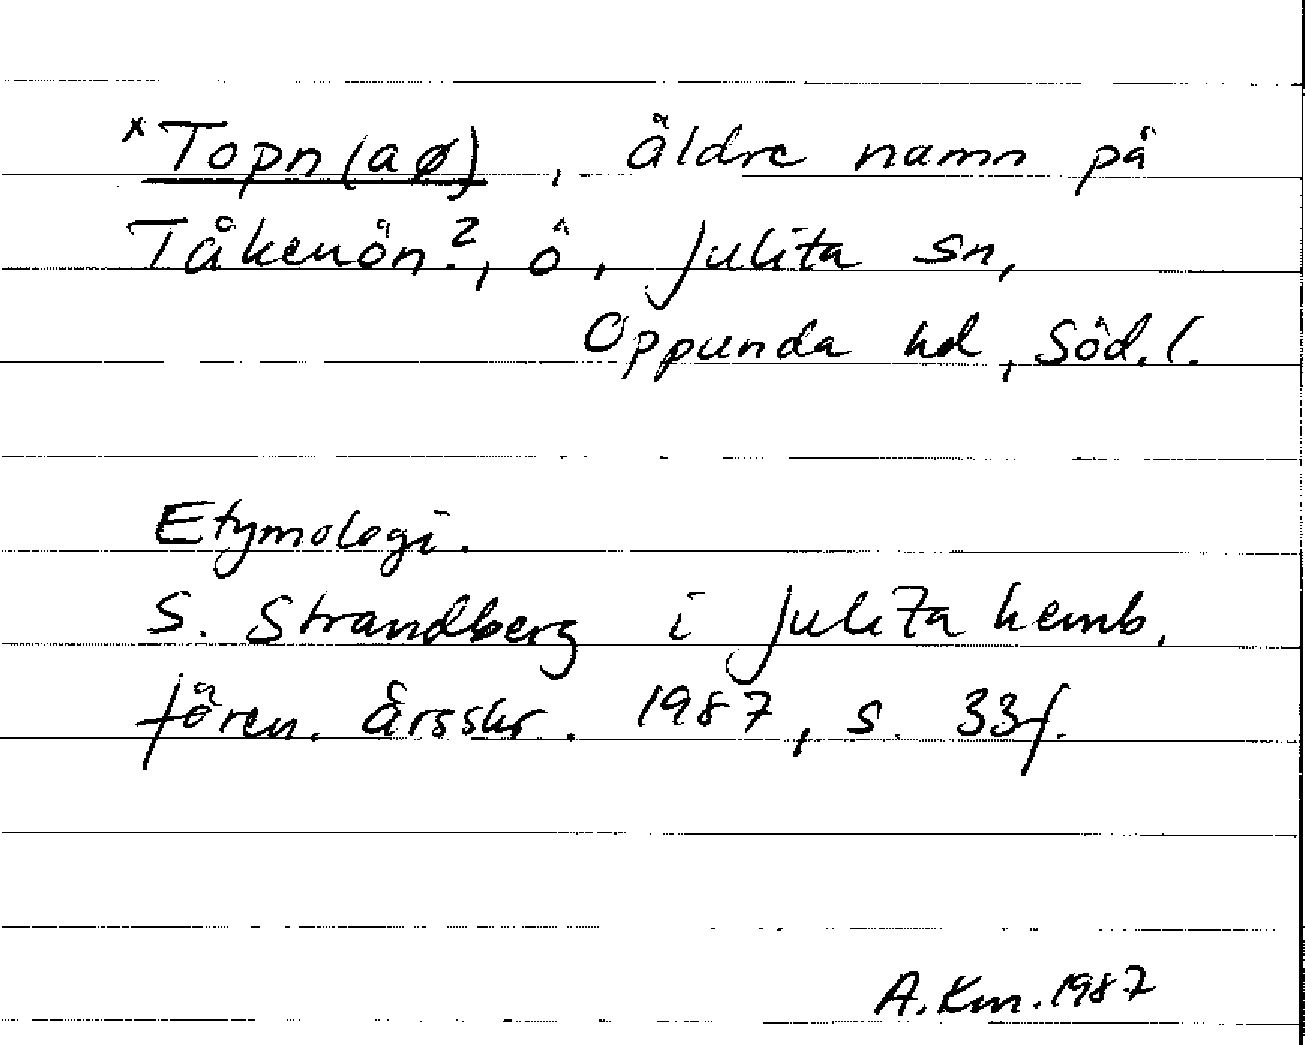 *Topn(aø), äldre namn på
Tåkenön?, ö, Julita sn,
Oppunda hd, Söd.l.
Etymologi.
S. Strandberg i Julita hemb.
fören. årsskr. 1987, s. 33f.
A. Km. 1987